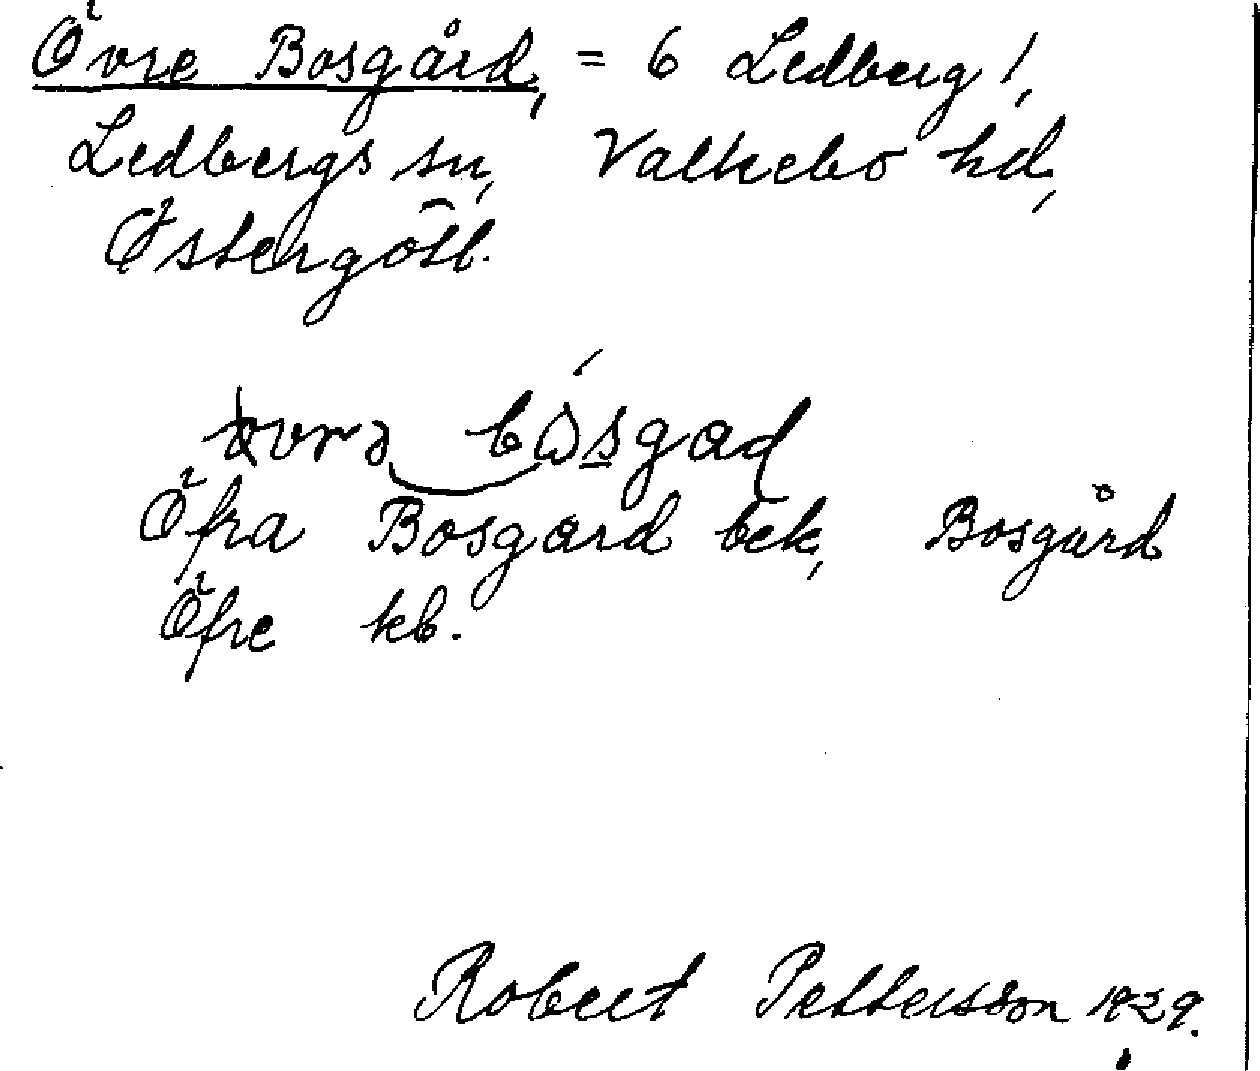 Övre Bosgård, = 6 Ledberg!,
Ledbergs sn, Valkebo hd,
Östergötl.
bósgad
Öfra Bosgard bek, Bosgård
Öfre kb.
Robert Pettersson 1929.